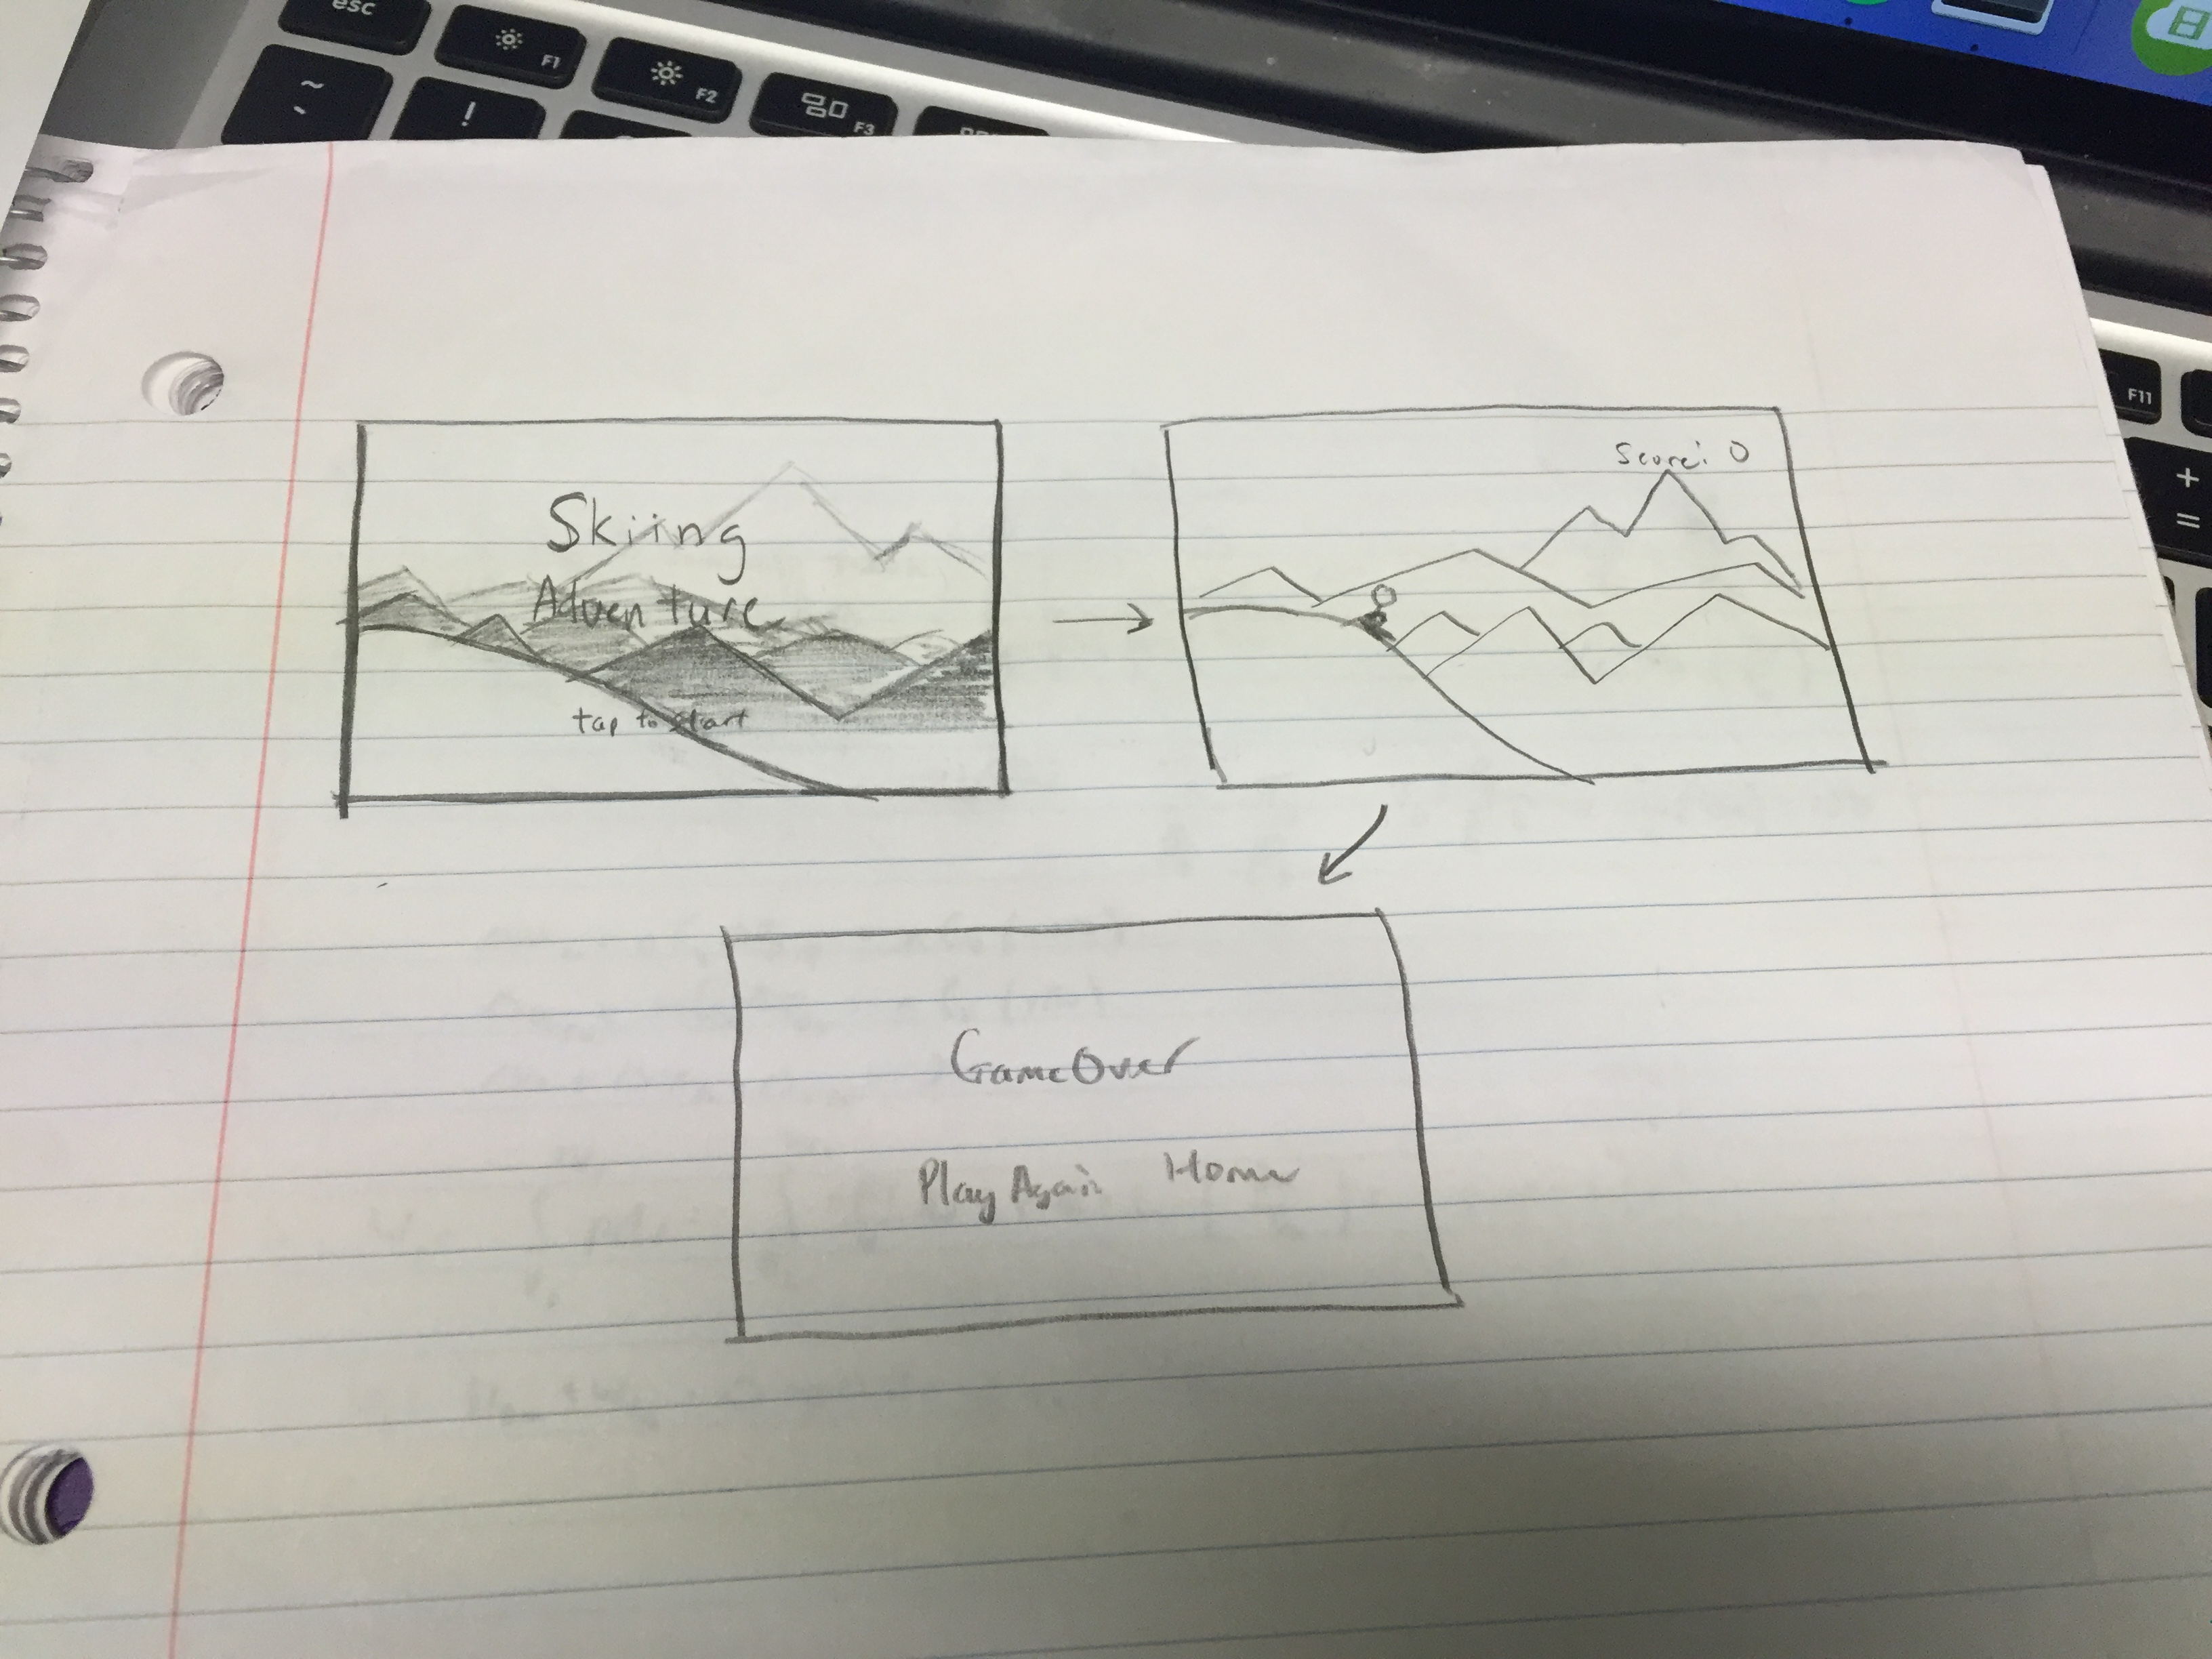 esc
F1
F2
F3
~
`
!
F11
+
=
Skiing
Adventure
tap to start
Score: 0
GameOver
Play Again Home